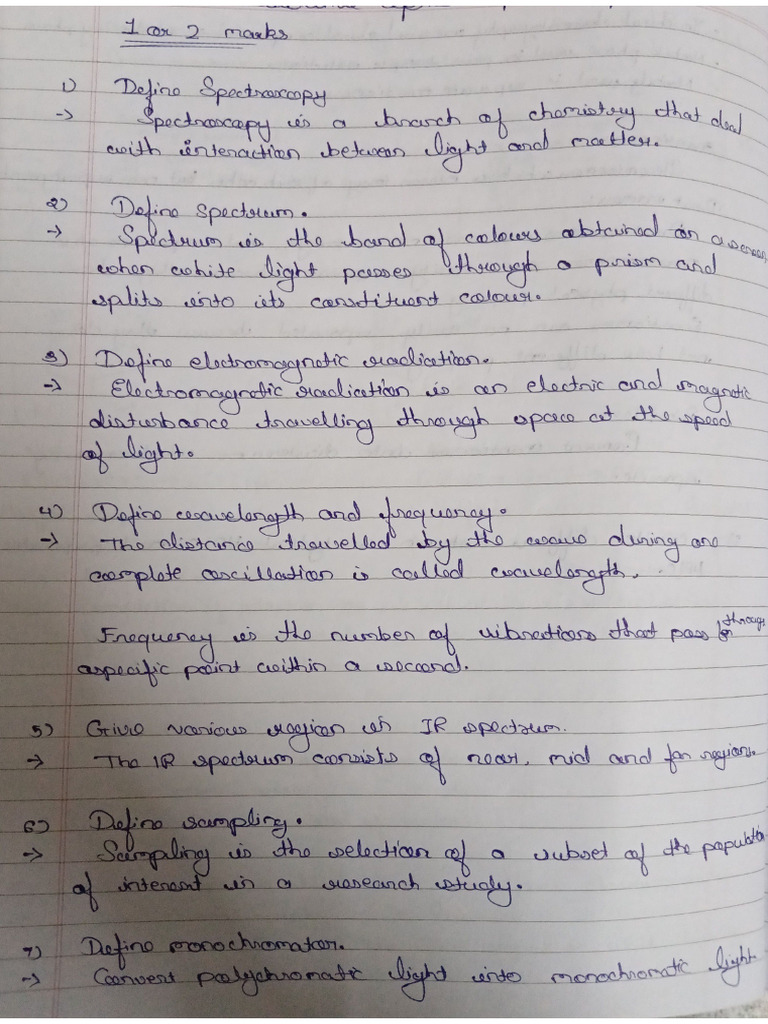 1 or 2 marks
1) Define Spectroscopy
→ Spectroscopy is a branch of chemistry that deal
with interaction between light and matter.
2) Define spectrum.
→ Spectrum is the band of colours obtained on a screen
when white light passes through a prism and
splits into its constituent colour.
3) Define electromagnetic radiation.
→ Electromagnetic radiation is an electric and magnetic
disturbance travelling through space at the speed
of light.
4) Define wavelength and frequency.
→ The distance travelled by the wave during one
complete oscillation is called wavelength.
Frequency is the number of vibrations that pass through
a specific point within a second.
5) Give various region of IR spectrum.
→ The IR spectrum consists of near, mid and far region.
6) Define sampling.
→ Sampling is the selection of a subset of the population
of interest in a research study.
7) Define monochromator.
→ Convert polychromatic light into monochromatic light